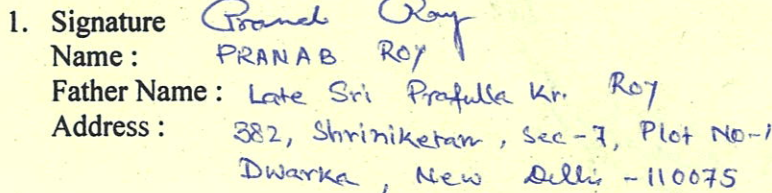 1. Signature Pranab Roy
Name : PRANAB ROY
Father Name : Late Sri Prafulla Kr. Roy
Address : 382, Shriniketan, Sec-7, Plot No-1
Dwarka, New Delhi - 110075